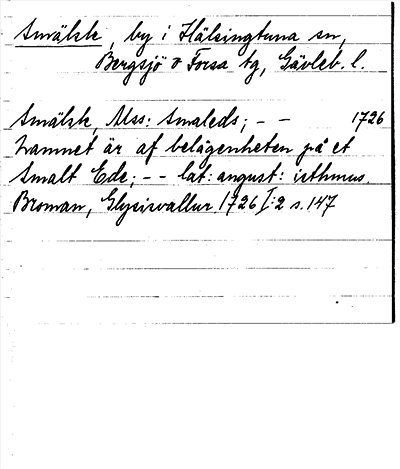 Smälsk, by i Hälsingtuna sn,
Bergsjö o Forsa tg, Gävleb. l.
Smälsk, Mss: Smaleds; – – 1726
namnet är af belägenheten på et
Smalt Ede; – – lat: angust: isthmus.
Broman, Glysisvallur 1726 I:2 s. 147